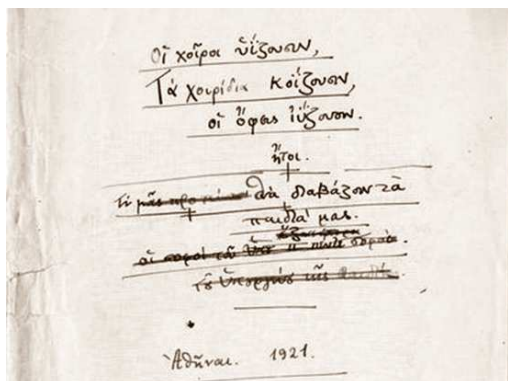 Οἱ χοῖροι ὑΐζουσιν,
Τὰ χοιρίδια κοΐζουσιν,
οἱ ὄφεις ἰΰζουσιν.
ἤτοι.
Τί μᾶς θὰ διαβάζουν τὰ
παιδιά μας.
οἱ σοφοὶ τοῦ
τῆς
Ἀθῆναι. 1921.